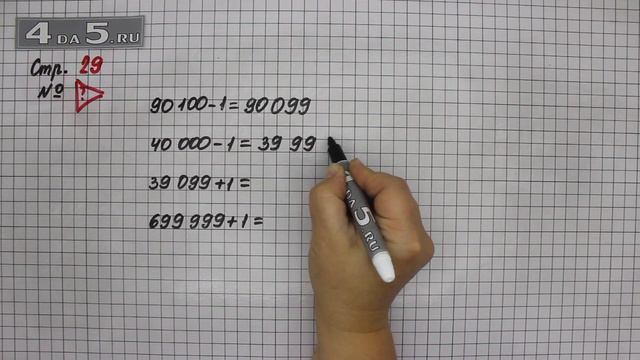 4 DA 5.RU
Стр. 29
№ ?
90 100-1=90 099
40 000-1=39 99
39 099+1=
699 999+1=
4 DA 5.RU